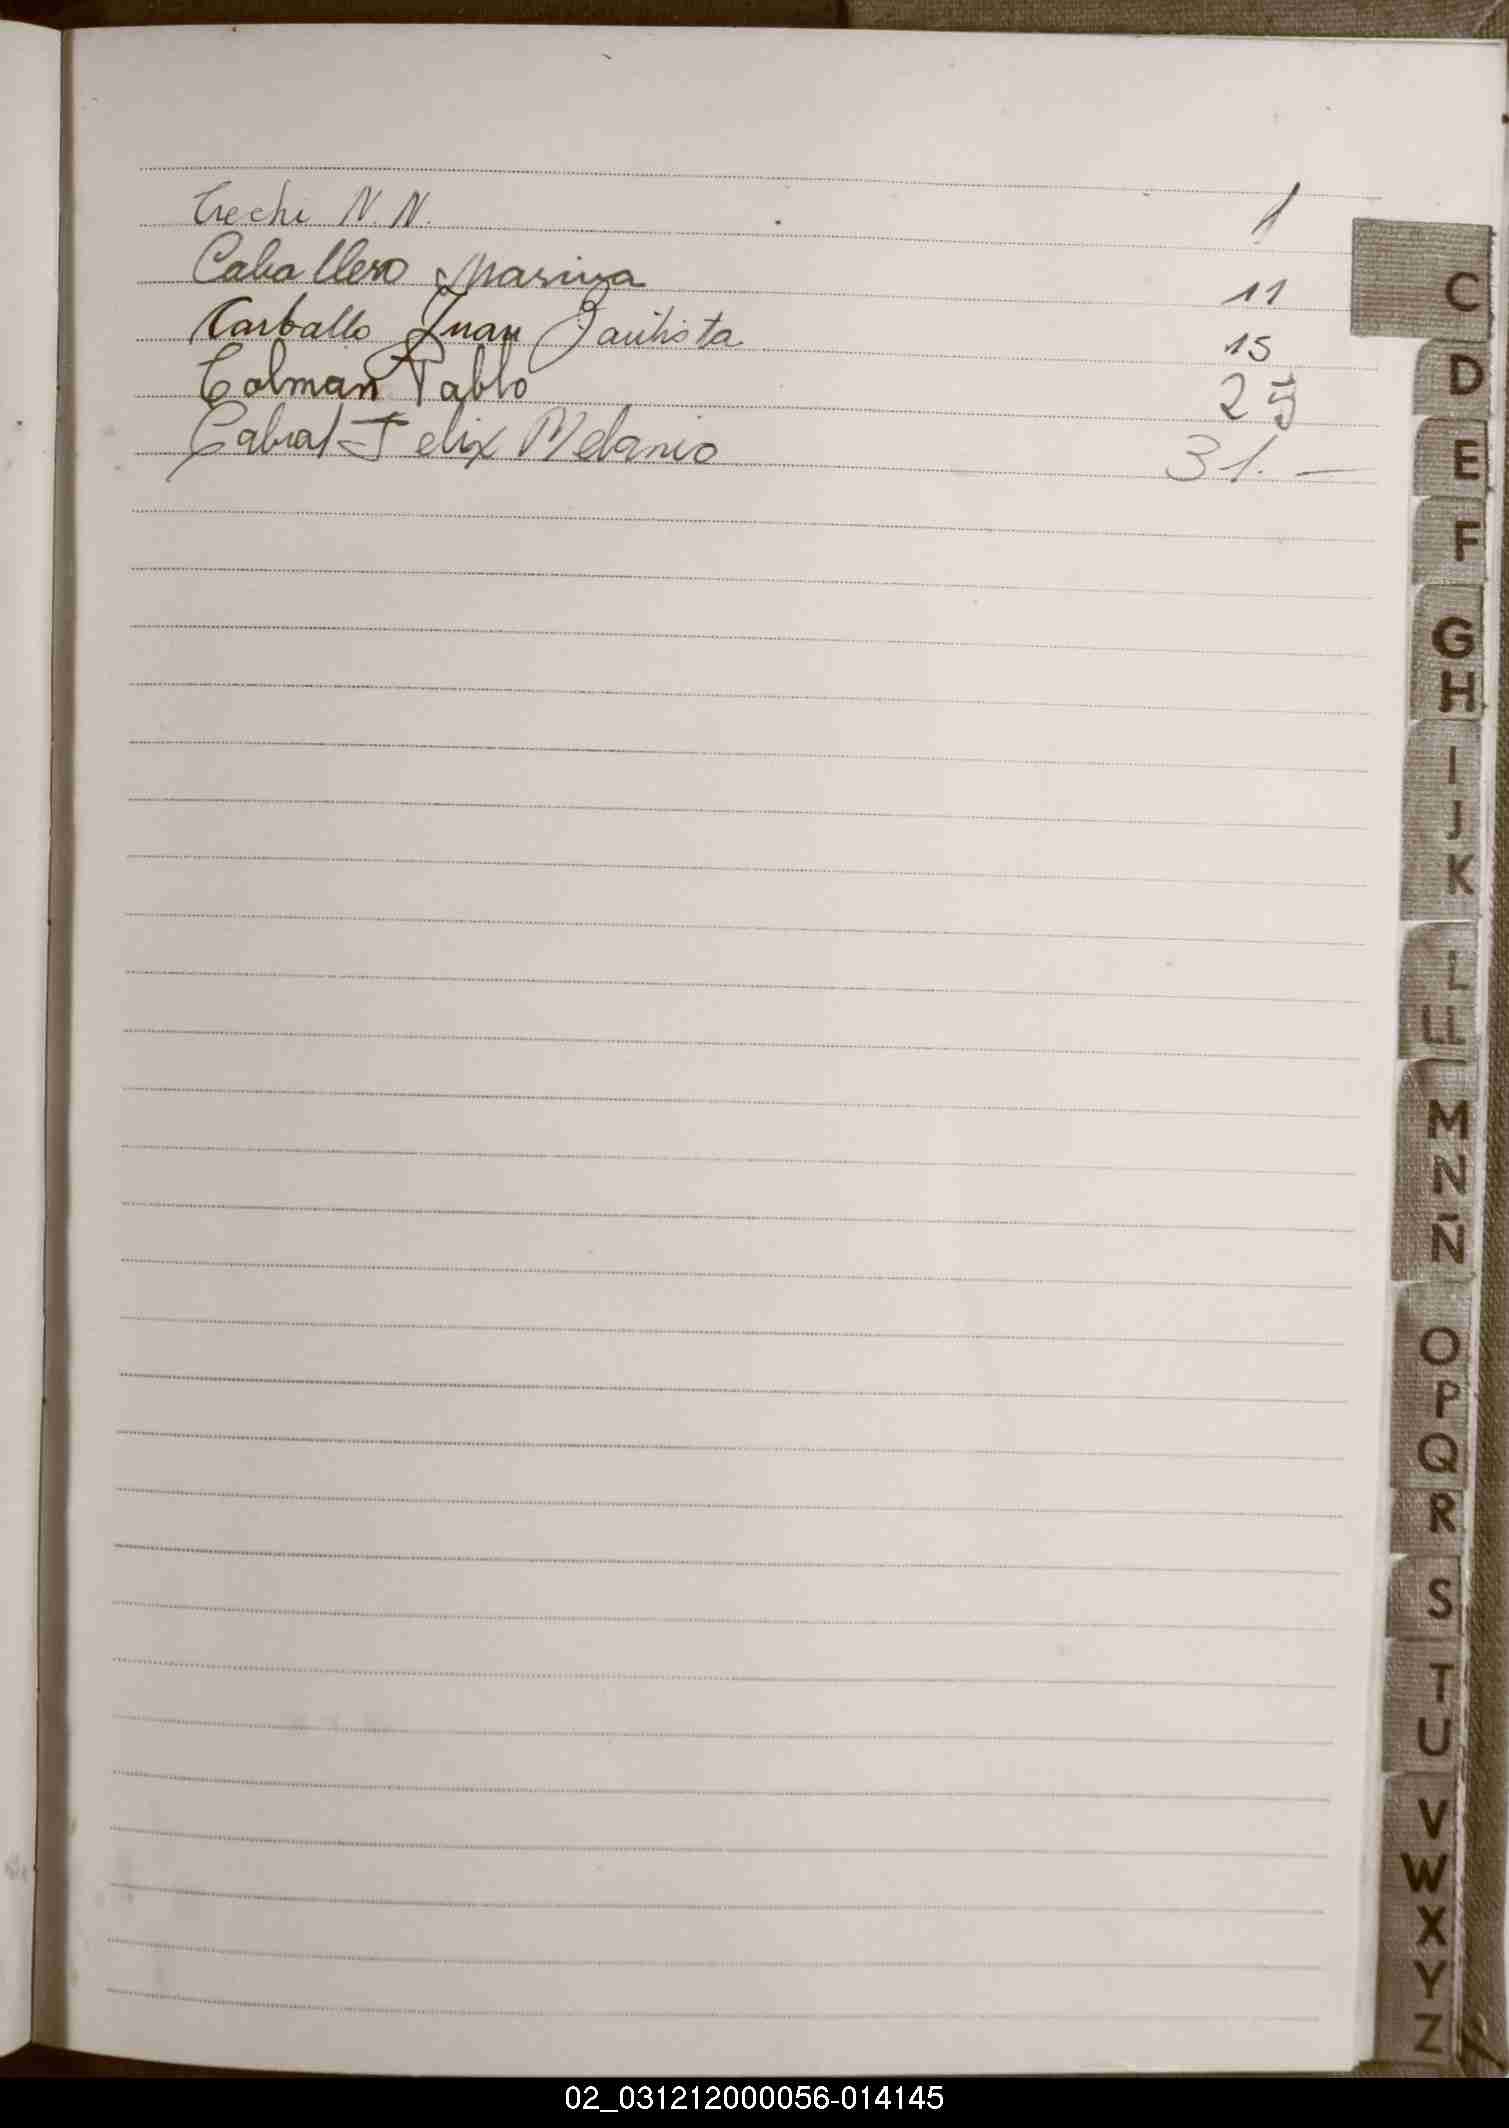 Crechi N. N. 1
Caballero Marina 11
Carballo Juan Bautista 15
Colman Pablo 25
Cabral Felix Melanio 31.—
C
D
E
F
G
H
I
J
K
L
LL
M
N
Ñ
O
P
Q
R
S
T
U
V
W
X
Y
Z
02_031212000056-014145